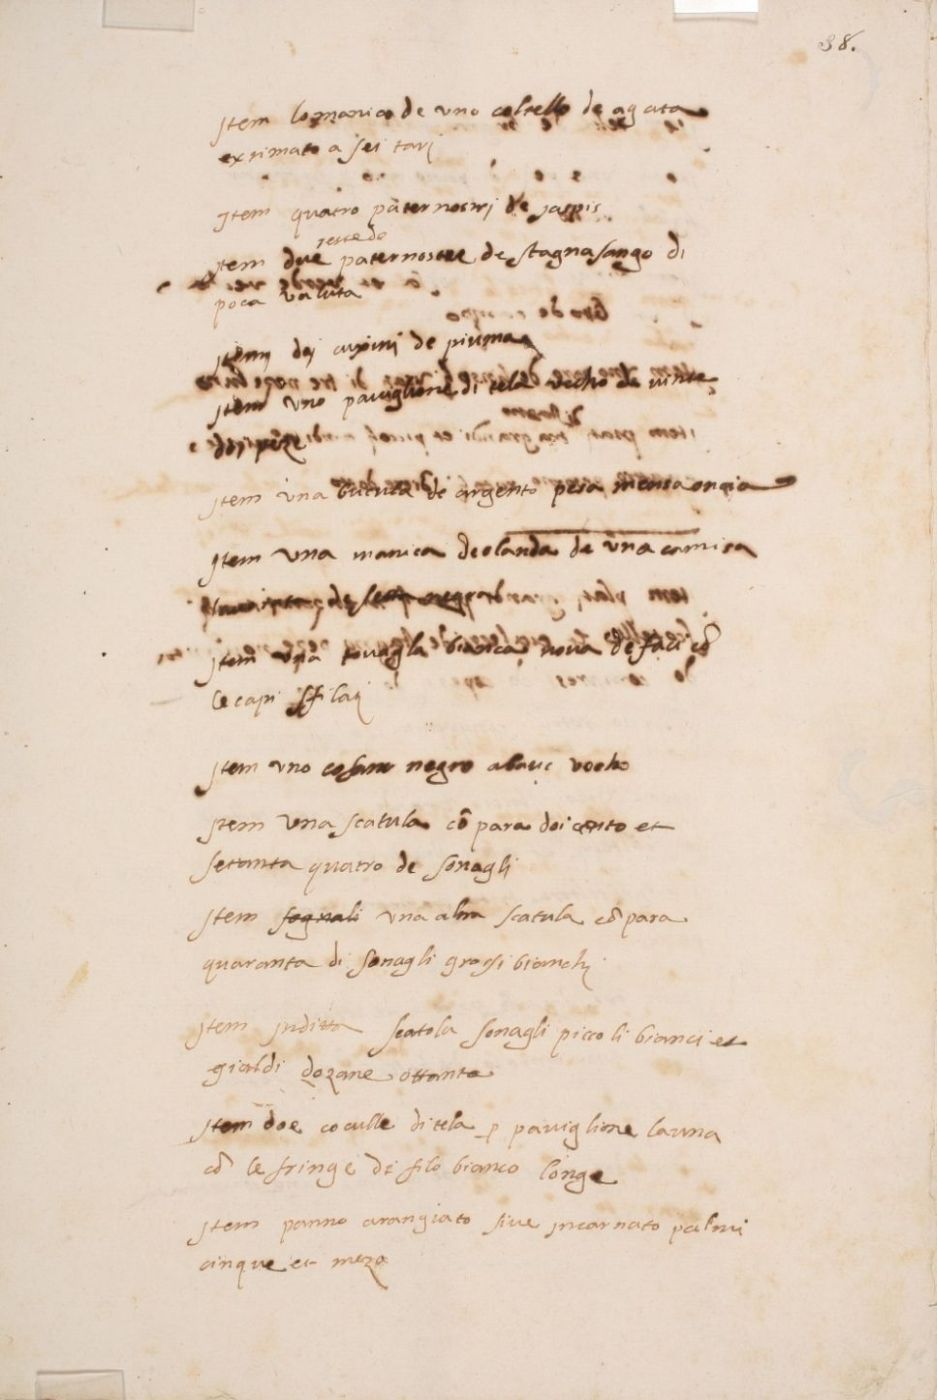 38.
Item lo manico de uno coltello de agata
extimato a sei tarì
Item quatro paternostri de jaspis
Item due paternostre de stagnasango di
poca valuta
Item dei cuxini de piuma
Item uno paviglione di tela vechio de vinte
peze
Item una de argento pesa menza oncia
Item una manica de olanda de una camisa
Item una tovagla bianca nova de faci cō
le capi sfilati
Item uno negro vecho
Item una scatula cō para doi cento et
setanta quatro de sonagli
Item sognali una altra scatula cō para
quaranta di sonagli grossi bianchi
Item in ditta scatola sonagli piccoli bianci et
gialdi dozane ottanta
Item doe coculle di tela p paviglione l'auna
cō le fringe de filo bianco longe
Item panno arangiato sive incarnato palmi
cinque et mezo